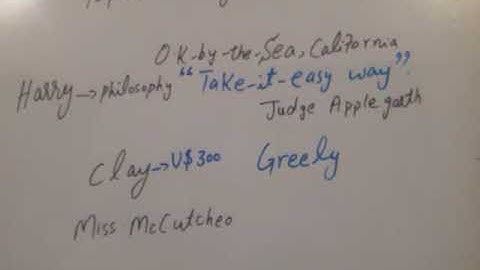 OK-by-the-Sea, California
Harry→philosophy "Take-it-easy way"
Judge Applegarth
Clay→U$300 Greely
Miss McCutcheo